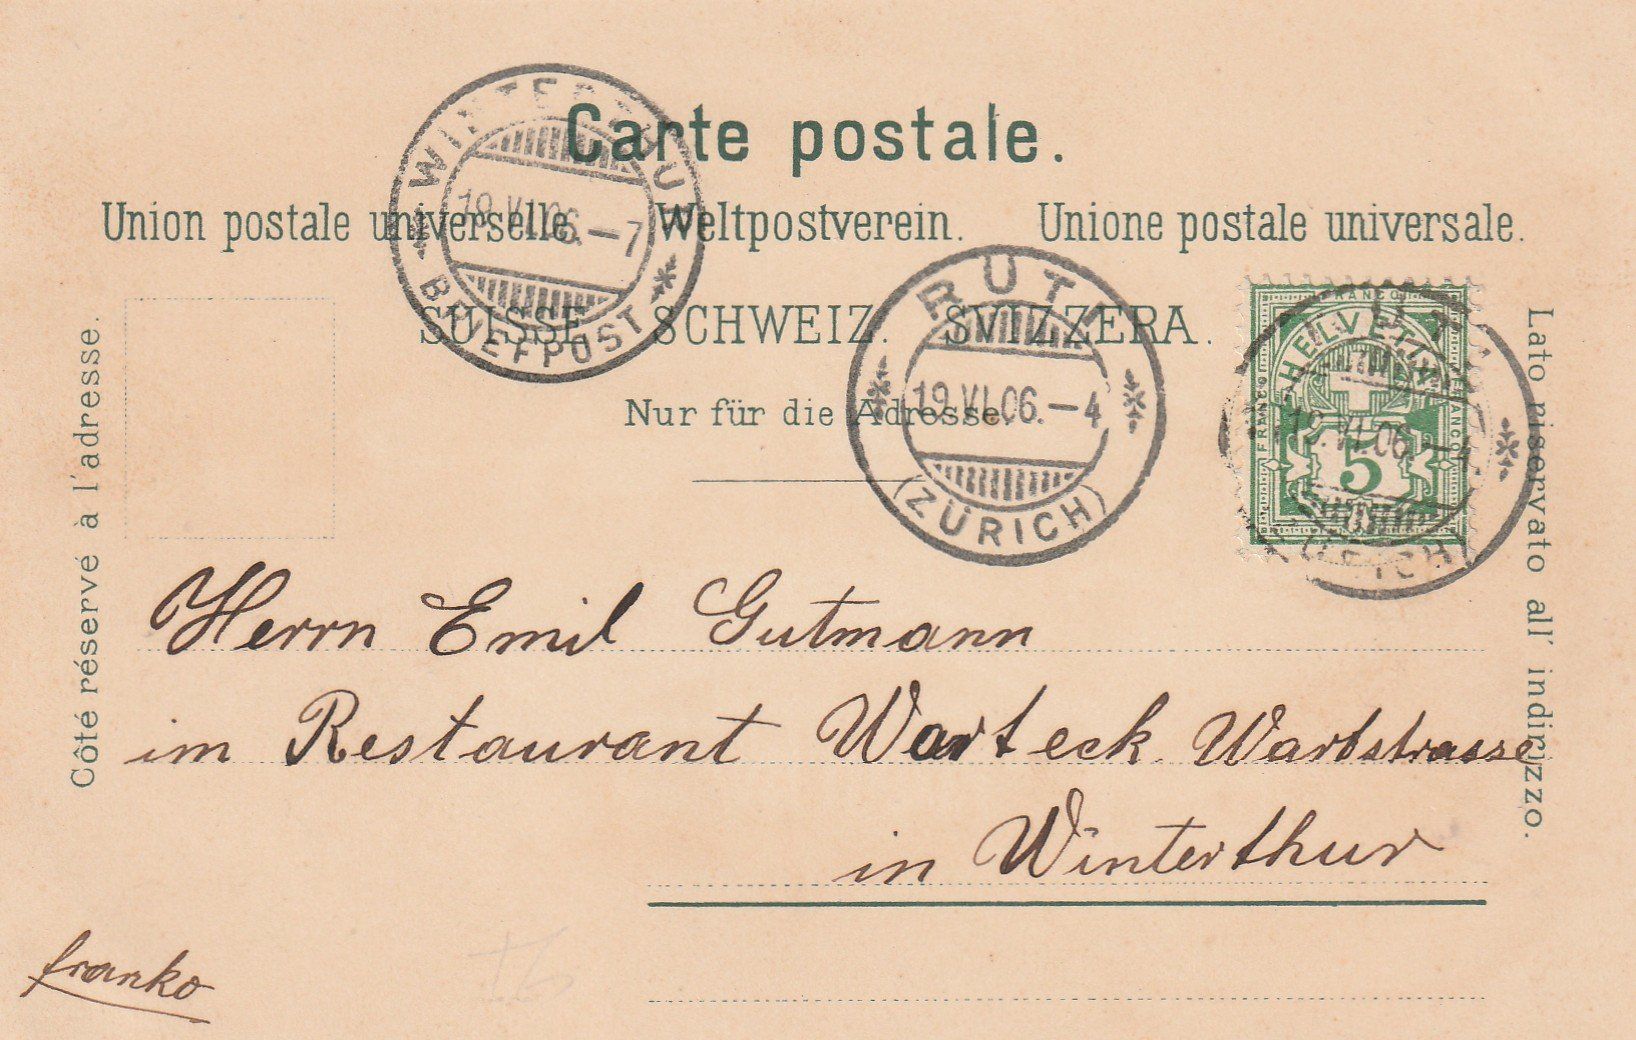 Carte postale.
Union postale universelle. Weltpostverein. Unione postale universale.
SUISSE. SCHWEIZ. SVIZZERA.
Nur für die Adresse.
Côté réservé à l'adresse.
Lato riservato all' indirizzo.
WINTERTHUR
19.VI.06.-7
BRIEFPOST
RÜTI
19.VI.06.-4
(ZÜRICH)
FRANCO
HELVETIA
FRANCO
FRANCO
5
19.VI.06.-4
(ZÜRICH)
Herrn Emil Gutmann
im Restaurant Warteck Wartstrasse
in Winterthur
franko